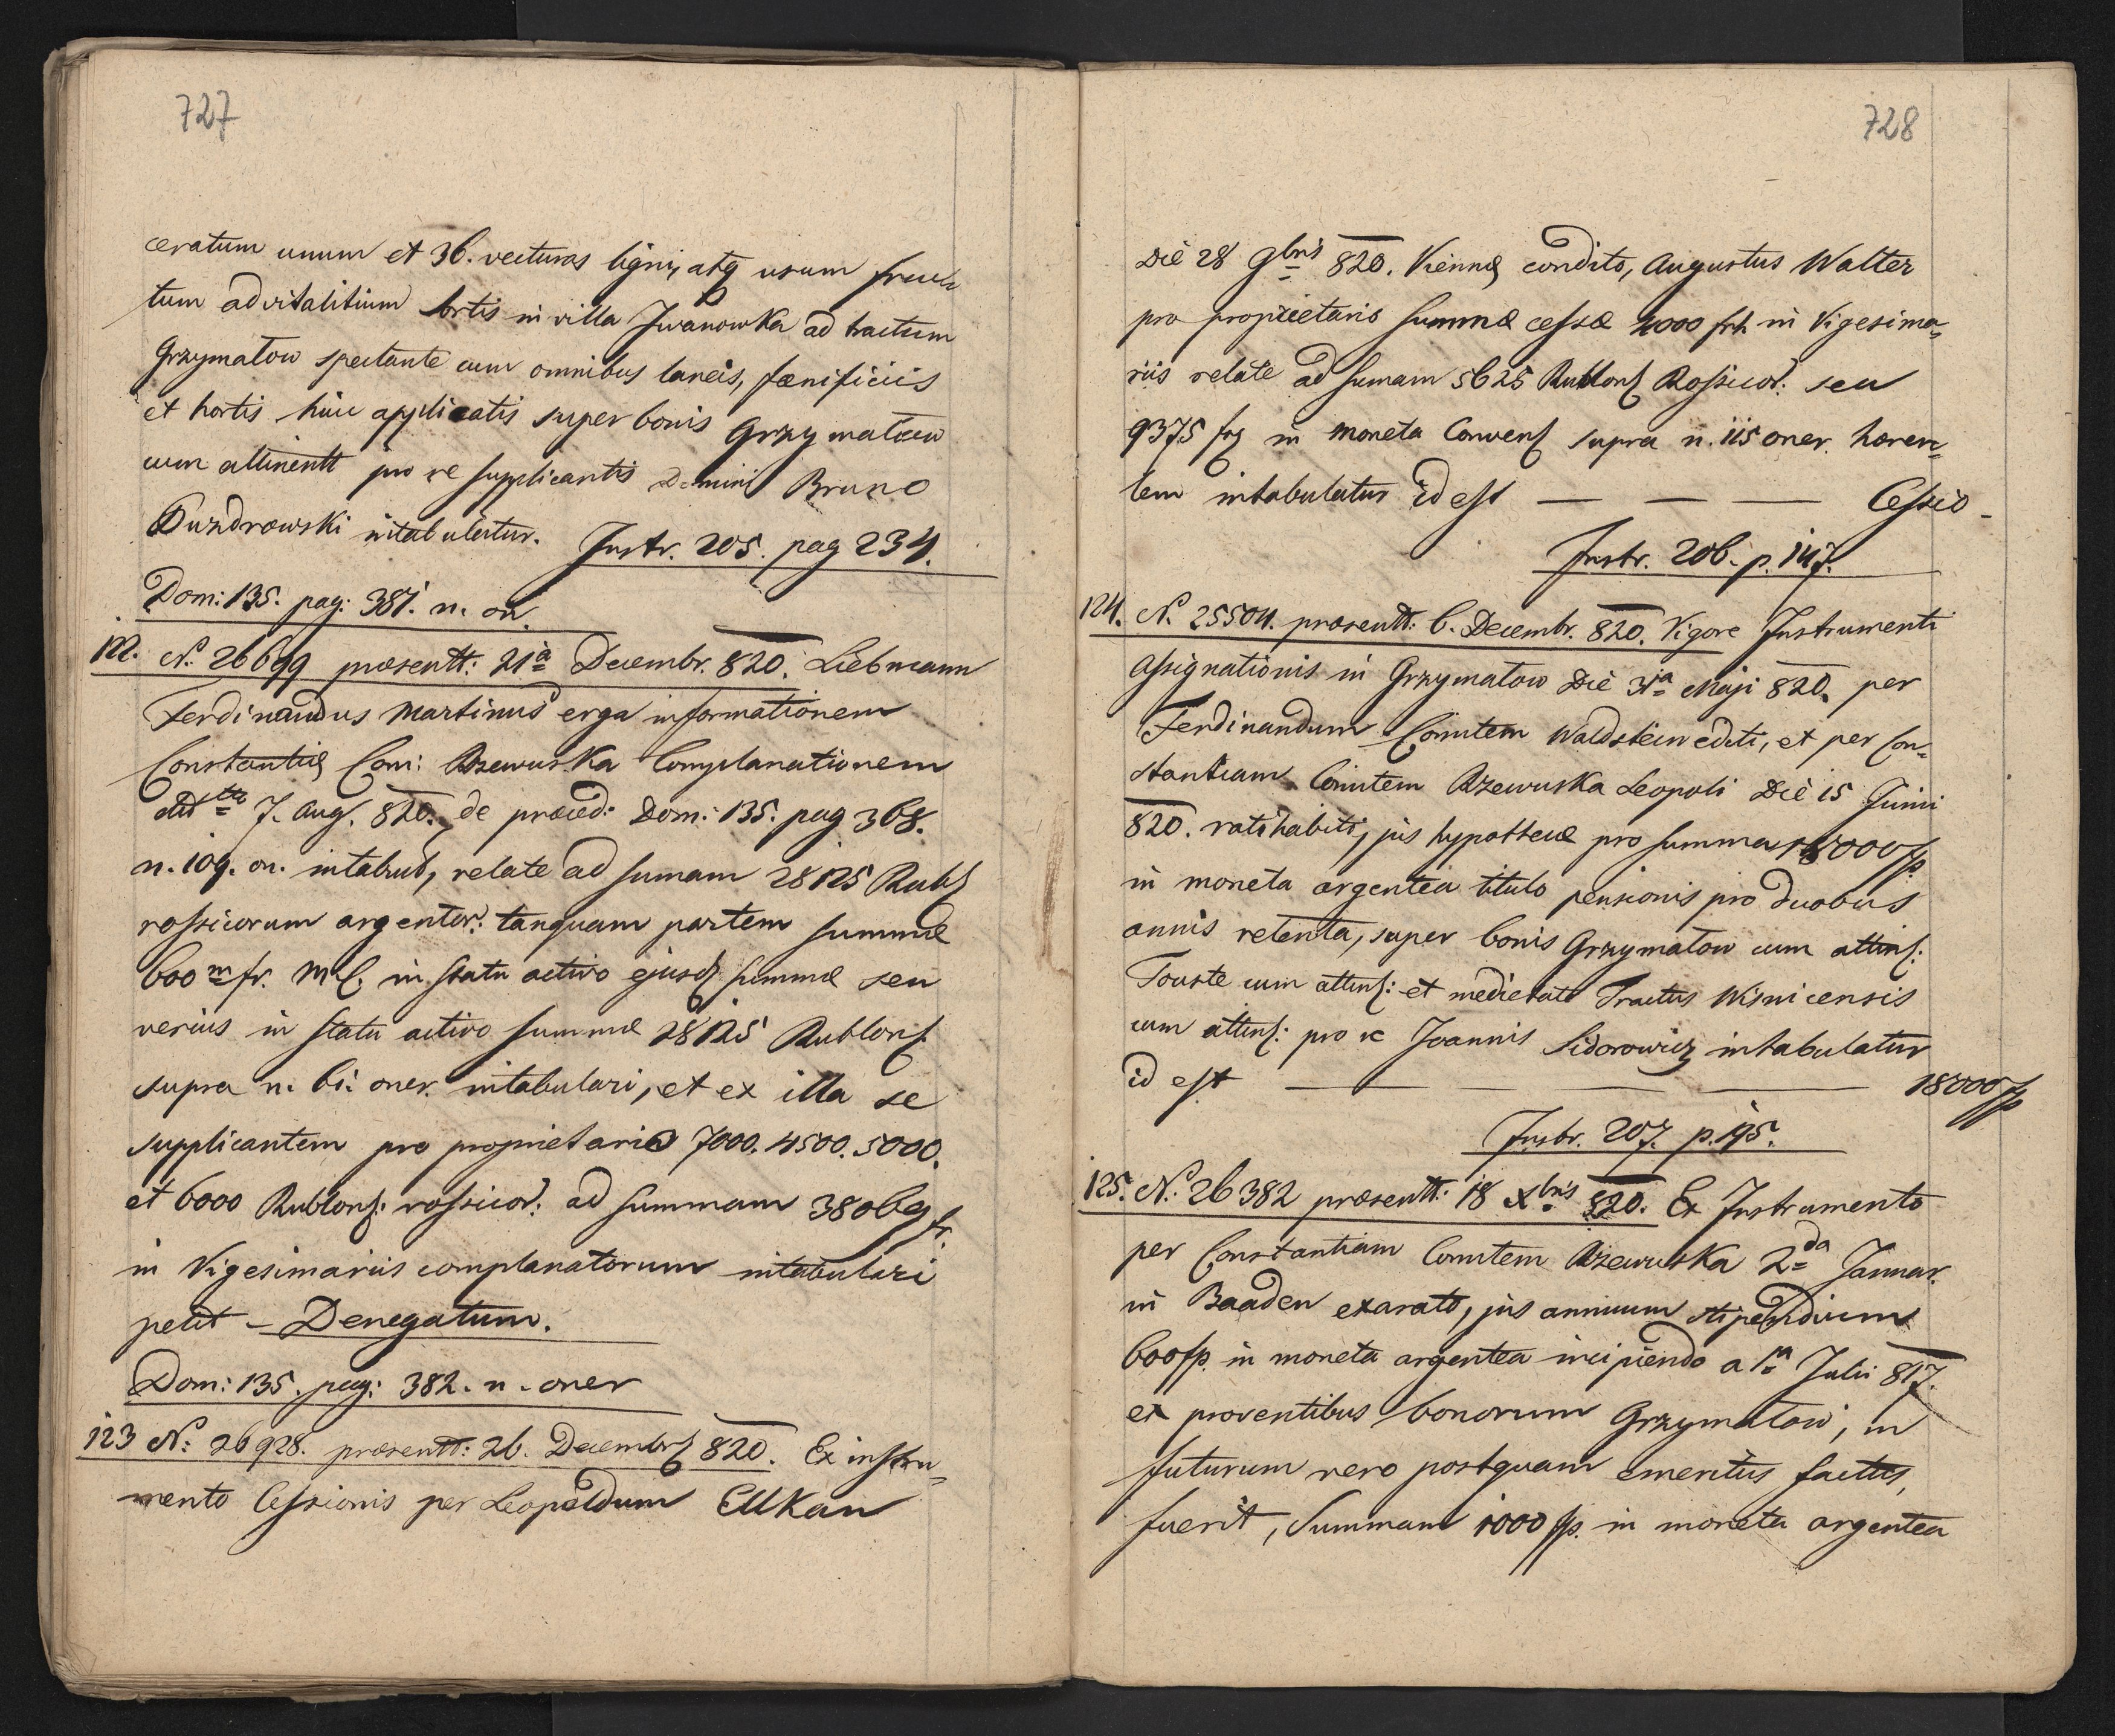 727
ceratum unum et 36. vecturas ligni, atq usum fruc
tum advitalitium sortis in villa Iwanowka ad tractum
Grzymałow spectante cum omnibus laneis, fœnificiis
et hortis huic applicatis super bonis Grzymałow
cum attinentt pro re supplicantis Domini Bruno
Duzdrowski intabulatur. Instr. 205. pag 234.
Dom: 135. pag: 381. n. on.
122. N. 26699 præsentt: 21a Decembr. 820. Liebmann
Ferdinandus Martinus erga informationem
Constantiæ Com: Rzewuska Complanationem
ddto 7. Aug. 820. de præced: Dom: 135. pag 368.
n. 109. on. intabul, relate ad sumam 28125 Rubl
rossicorum argentor: tanquam partem summæ
600 m fr. M.C. in statu activo ejusd summæ seu
verius in statu activo summæ 28125 Rublon
supra n. 61. oner. intabulari, et ex illa se
supplicantem pro proprietario 7000. 4500. 5000.
et 6000 Rublon: rossicor: ad summam 38069 fr.
in Vigesimariis complanatorum intabulari
petit – Denegatum.
Dom: 135. pag: 382. n. oner
123 N: 26928. præsentt: 26. Decembr 820. Ex instru=
mento Cessionis per Leopoldum Ellkan
728
Die 28 9bris 820. Viennæ condito, Augustus Walter
pro proprietario summæ cessæ 4000 frh in Vigesima=
riis relate ad sumam 5625 Rublon Rossicor: seu
9375 fr in moneta Convens supra n. 115 oner. hæren=
tem intabulatur id est — — — Cessio –
Instr. 206. p. 147.
124. N. 25504. præsentt: 6. Decembr. 820. Vigore Instrumenti
Assignationis in Grzymałow Die 31a Maji 820. per
Ferdinandum Comitem Waldstein editi, et per Con=
stantiam Comitem Rzewuska Leopoli Die 15 Junii
820. ratihabiti, jus hypothecæ pro summa 18000 fp
in moneta argentea titulo pensionis pro duobus
annis retenta, super bonis Grzymałow cum attin:
Touste cum attin: et medietate Tractus Wisnicensis
cum attin: pro re Joannis Sidorowicz intabulatur
id est — — — — 18000 fp
Instr. 207. p. 195.
125. N. 26382 præsentt: 18 Xbris 820. Ex Instrumento
per Constantiam Comitem Rzewuska 2da Januar.
in Baaden exarato, jus annuum stipendium
600 fp. in moneta argentea incipiendo a 1a Julii 817.
ex proventibus bonorum Grzymałow, in
futurum vero postquam emeritus factus,
fuerit, Summam 1000 fp. in moneta argentea